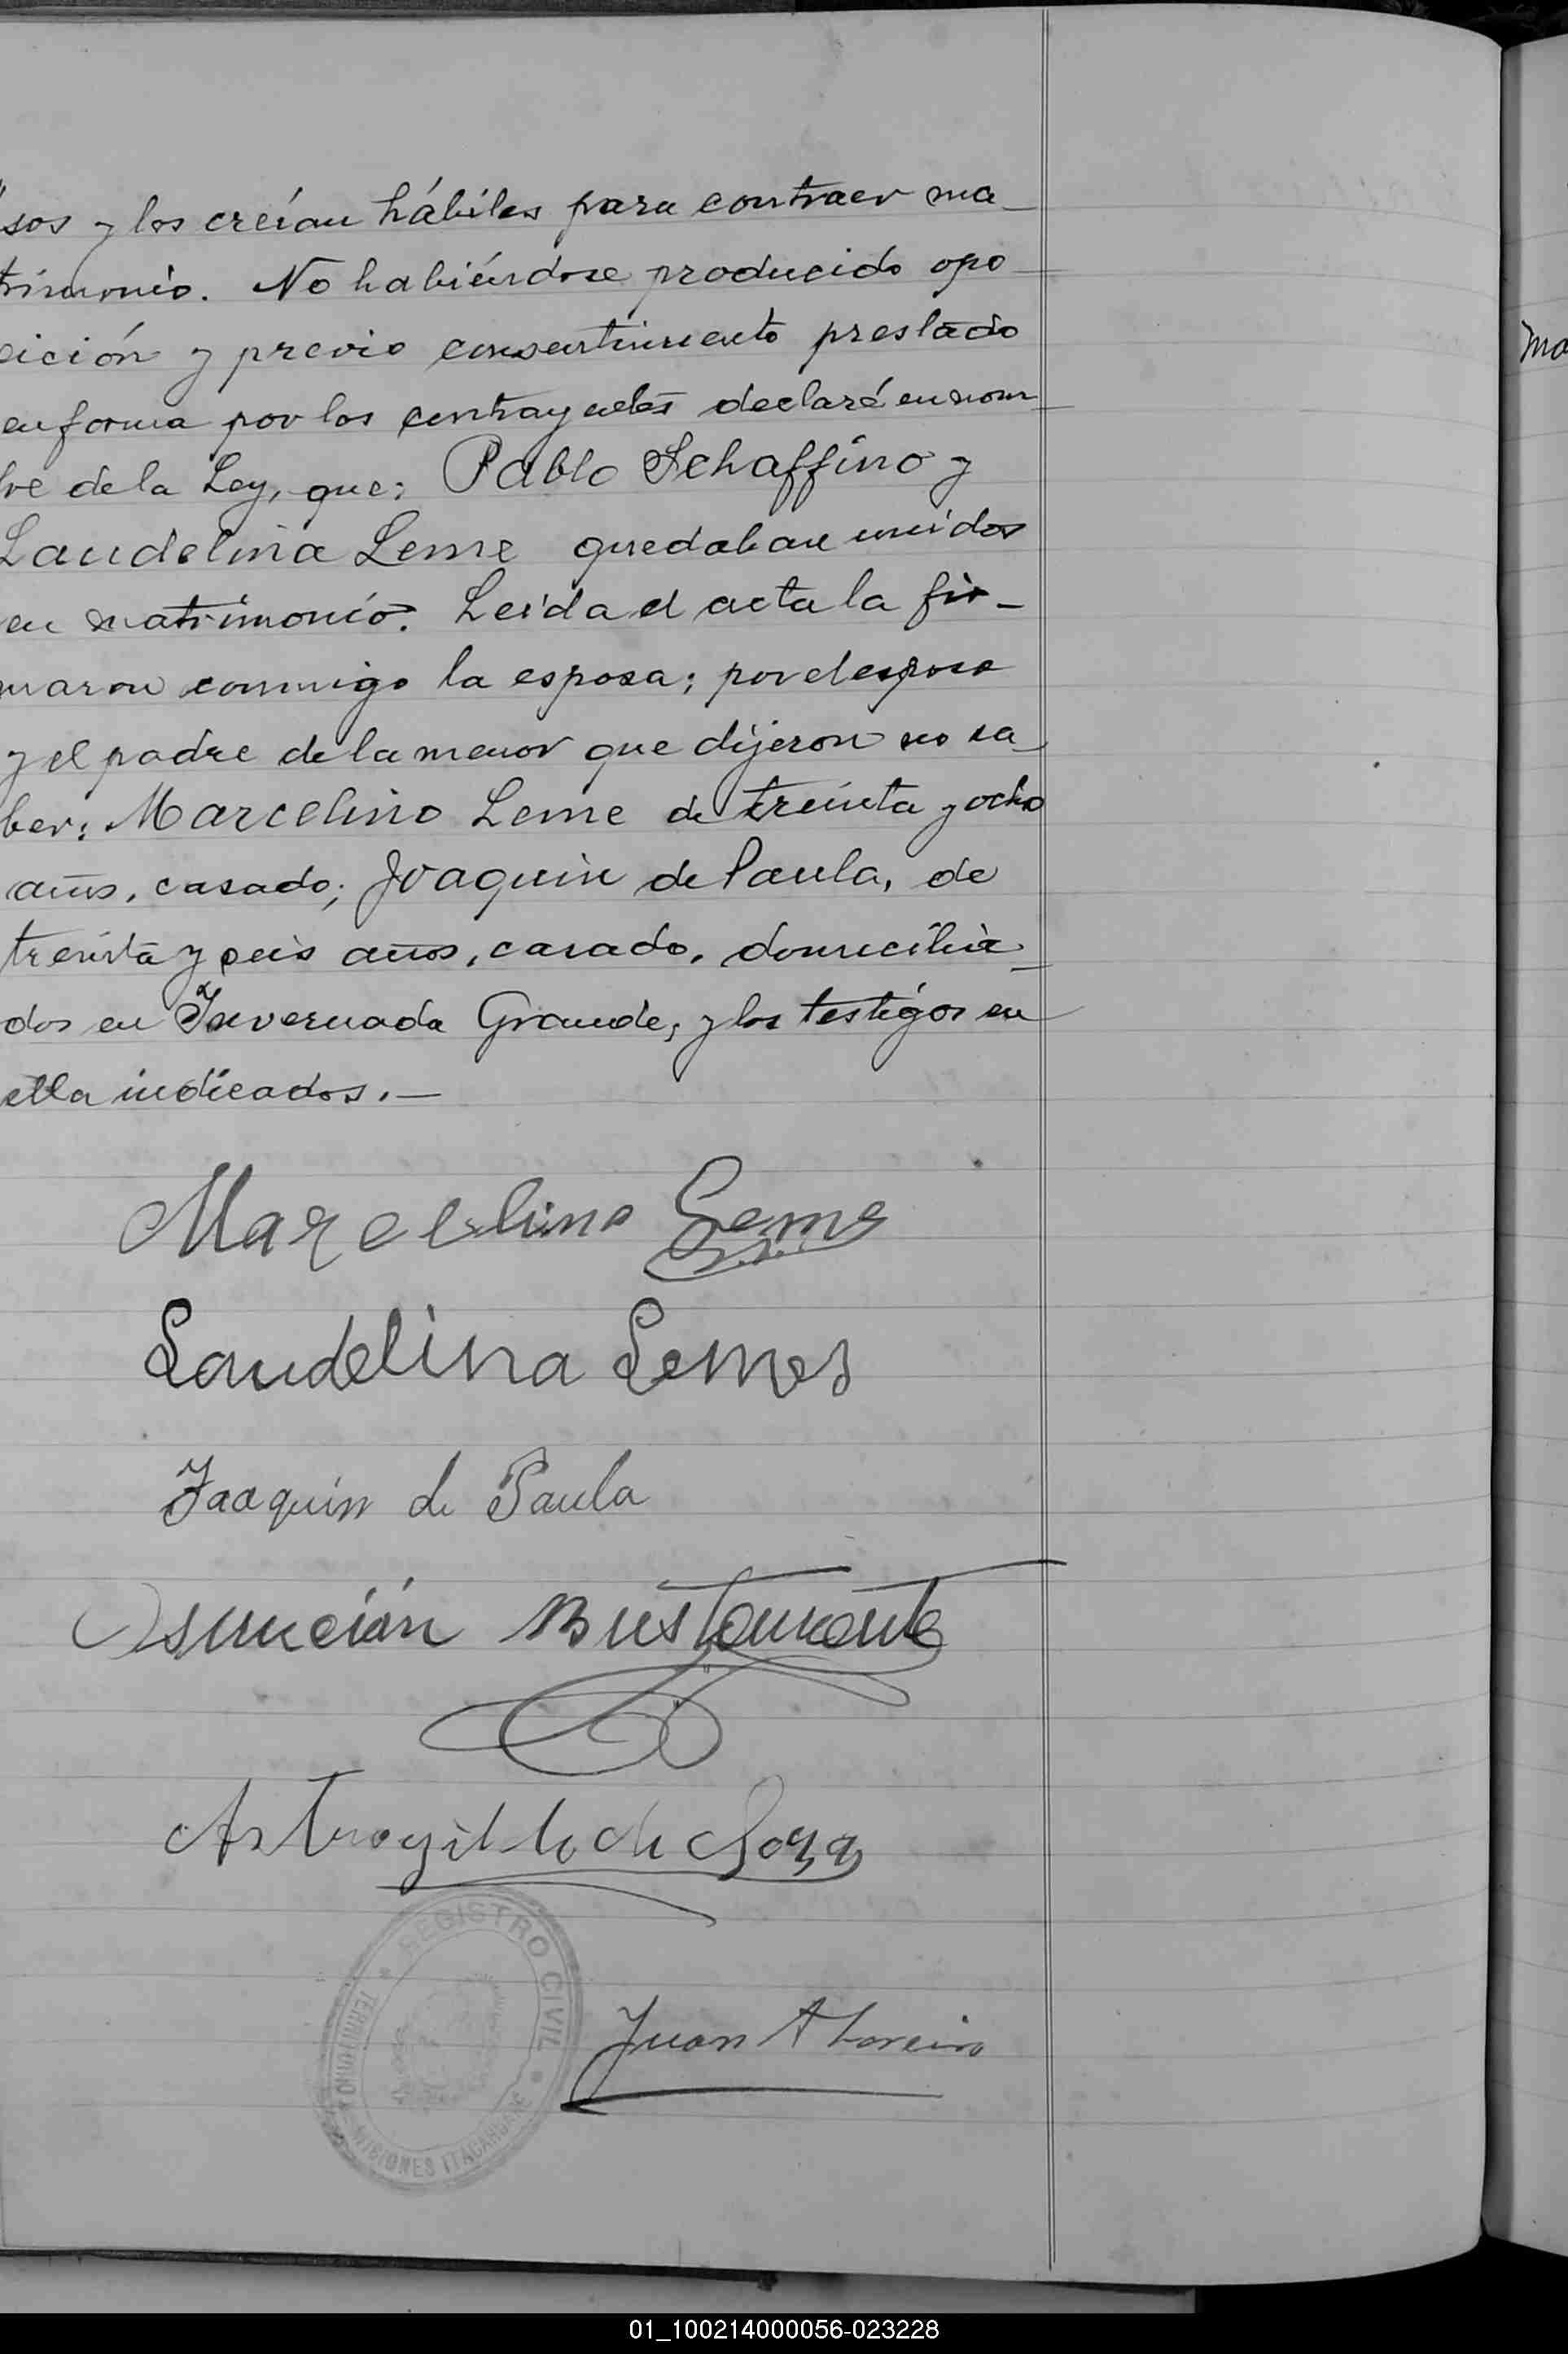 sos y los creían hábiles para contraer ma_
trimonio. No habiéndose producido opo_
sición y previo consentimiento prestado
en forma por los contrayentes declaré en nom_
bre de la Ley, que: Pablo Schaffino y
Laudelina Leme quedaban unidos
en matrimonio. Leida el acta la fir_
maron conmigo la esposa; por el esposo
y el padre de la menor que dijeron no sa_
ber: Marcelino Leme de treinta y ocho
años, casado; Joaquin de Paula, de
treinta y seis años, casado, domicilia_
dos en Invernada Grande, y los testigos en
ella indicados.—
Marcelino Leme
Laudelina Lemes
Joaquin de Paula
Asunción Bustamante
de
REGISTRO CIVIL
TERRITORIO MISIONES ITACARUARE
Juan A
Ma
01_100214000056-023228